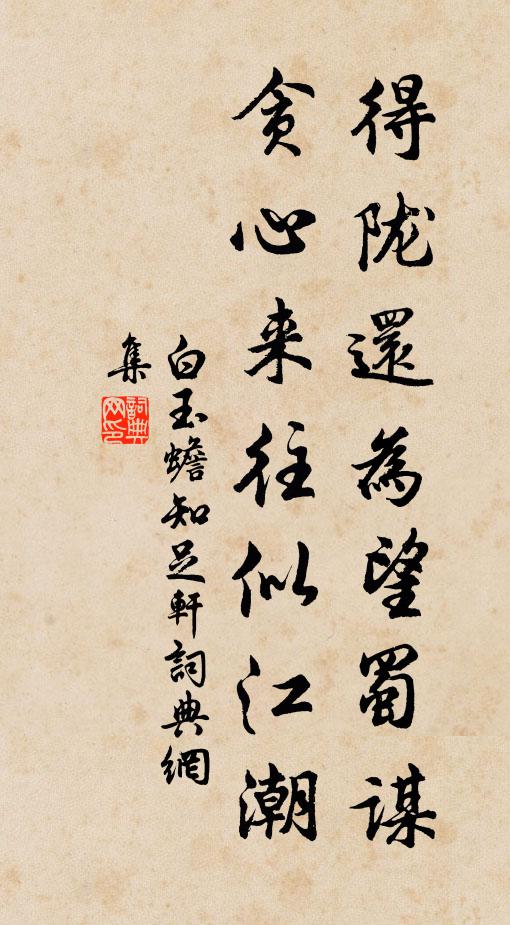 得陇還為望蜀謀
贪心来往似江潮
白玉蟾知足軒詞典網
集
詞典網印